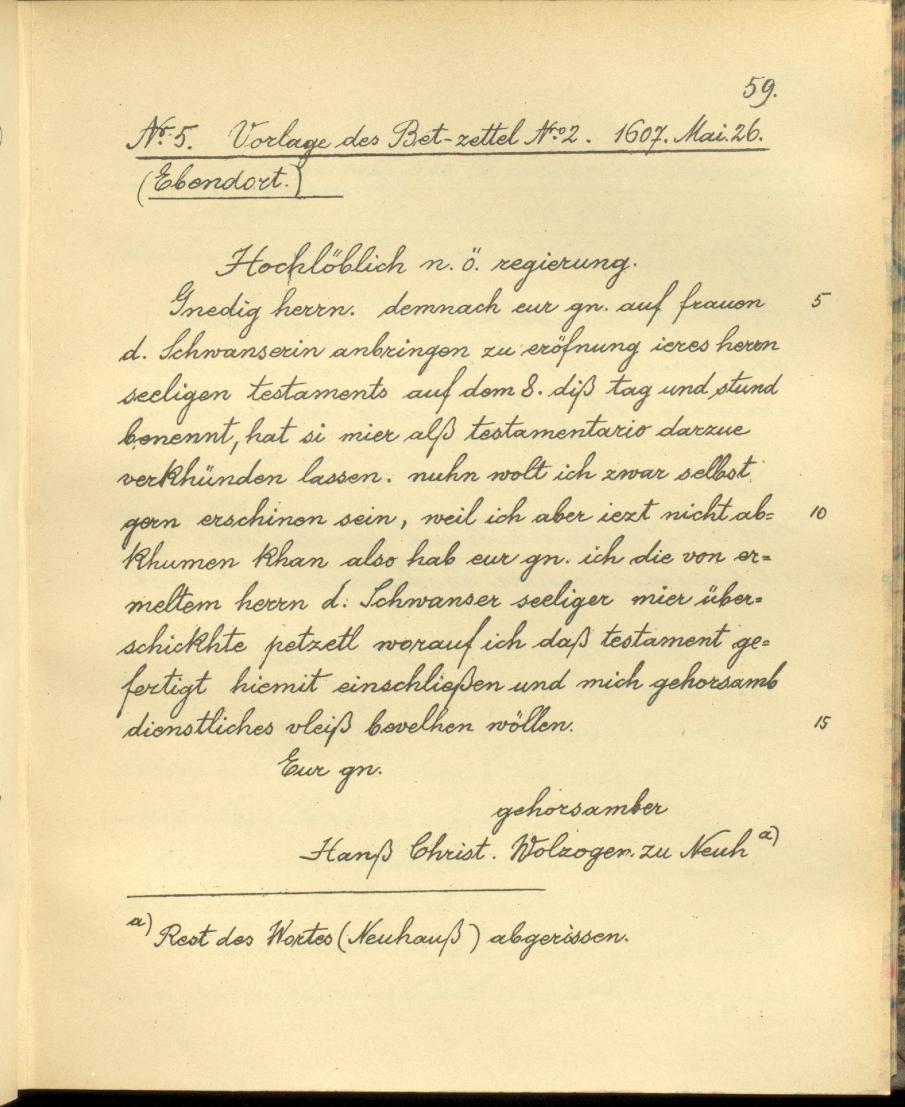 59.
Nr. 5. Vorlage des Bet-zettel Nro 2. 1607. Mai. 26.
(Ebendort.)
Hochlöblich n. ö. regierung.
Gnedig herrn. demnach eur gn. auf frauen 5
d. Schwanserin anbringen zu eröfnung ieres herrn
seeligen testaments auf dem 8. diß tag und stund
benennt, hat si mier alß testamentario darzue
verkhünden lassen. nuhn wolt ich zwar selbst
gern erschinen sein, weil ich aber iezt nicht ab= 10
khumen khan also hab eur gn. ich die von er=
meltem herrn d. Schwanser seeliger mier über=
schickhte petzetl worauf ich daß testament ge=
fertigt hiemit einschließen und mich gehorsamb
dienstliches vleiß bevelhen wöllen. 15
Eur gn.
gehorsamber
Hanß Christ. Wolzogen zu Neuh a)
a) Rest des Wortes (Neuhauß) abgerissen.